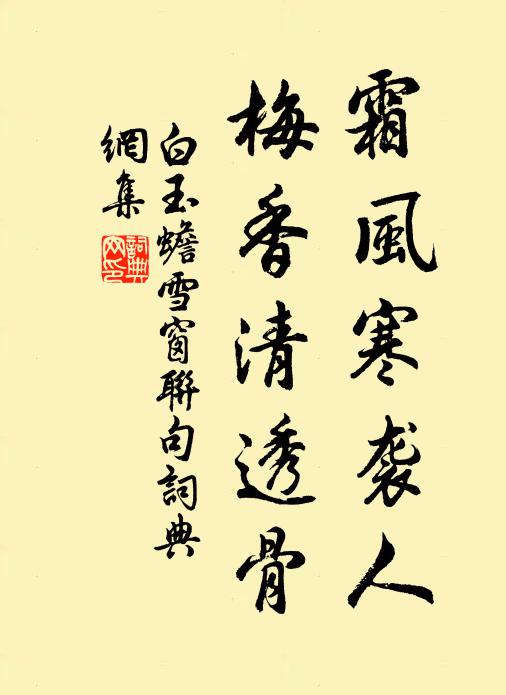 霜風寒袭人
梅香清透骨
白玉蟾雪窗聯句詞典
網集
詞典网印